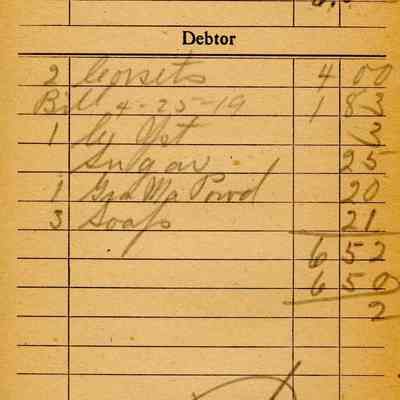 Debtor
2 Corsets 4 00
Bill 4-25-19 1 83
1 Yst 3
Sugar 25
1 Ma Powd 20
3 Soaps 21
6 52
6 50
2